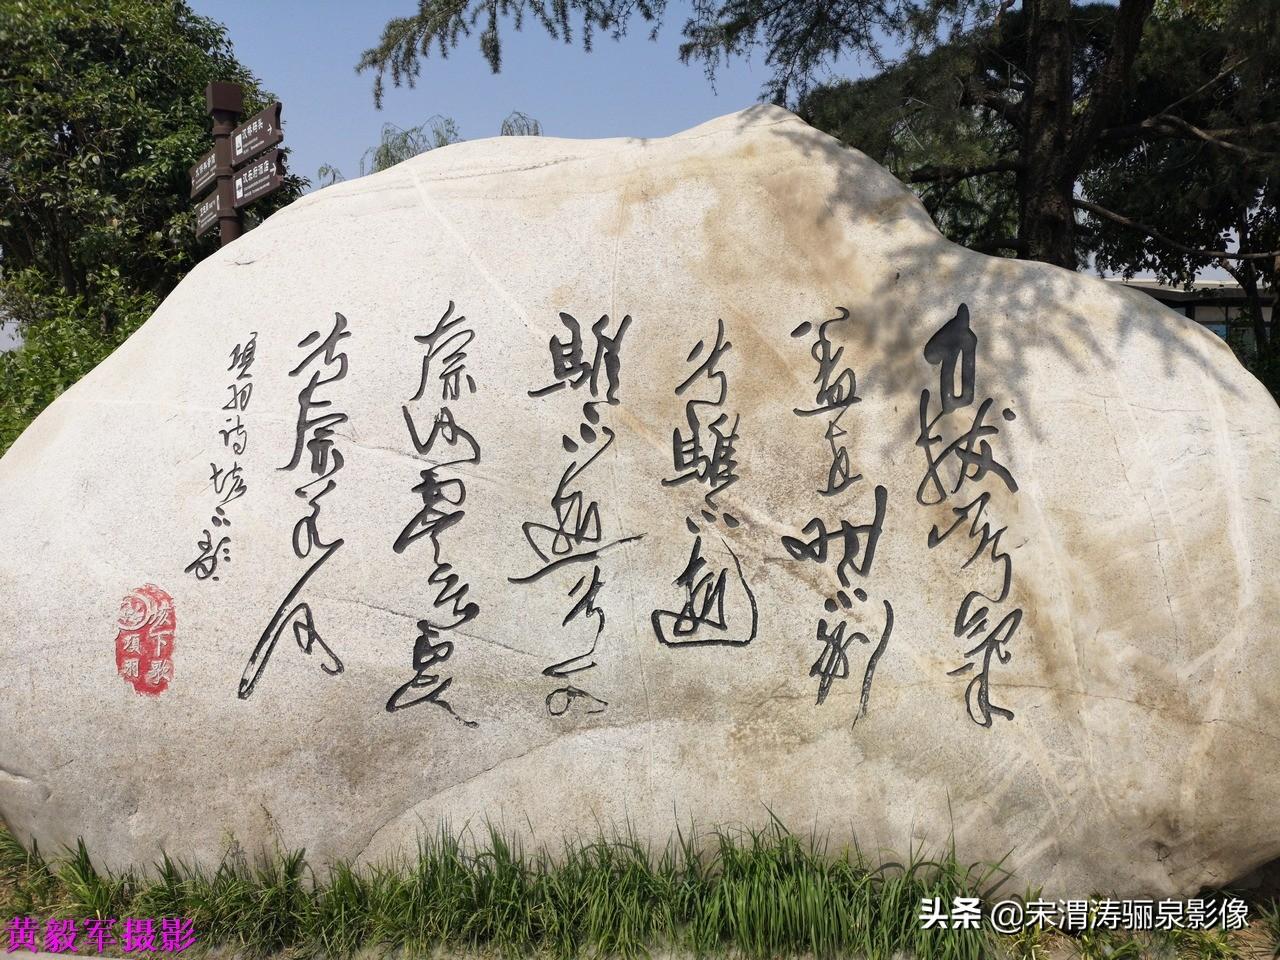 力拔山兮氣
蓋世時不利
兮騅不逝
騅不逝兮可
奈何虞兮虞
兮奈若何
項羽詩垓下歌
垓下歌
項羽
黄毅军摄影
头条 @宋渭涛骊泉影像